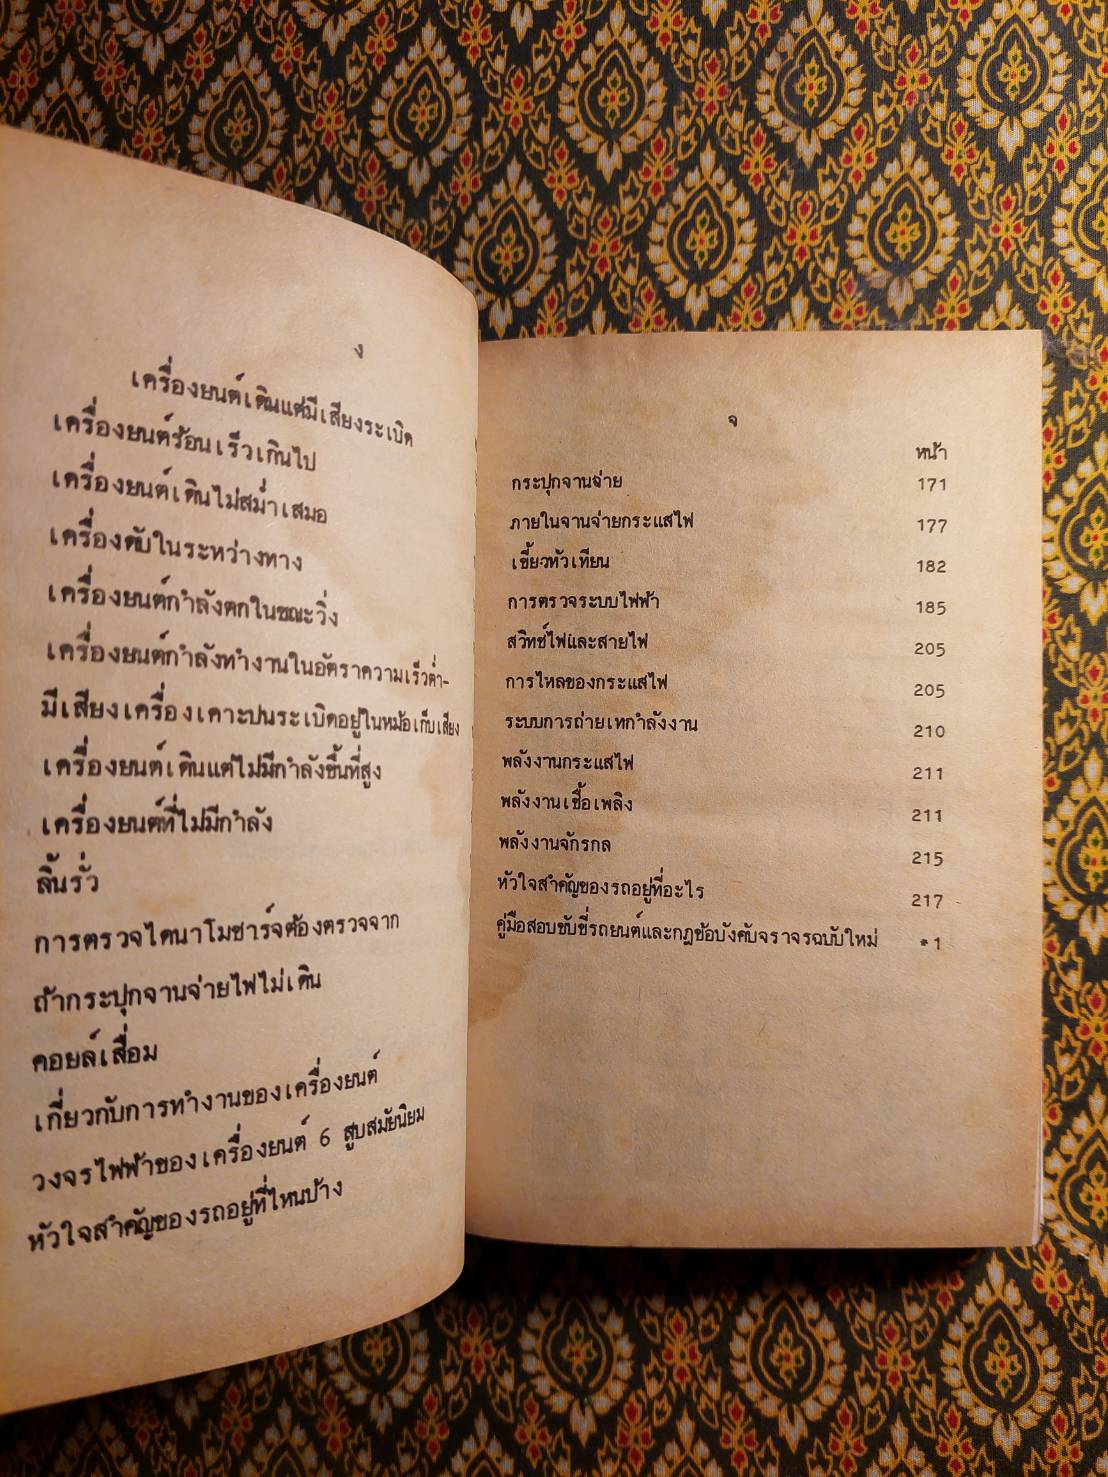 ง
เครื่องยนต์เดินแต่มีเสียงระเบิด
เครื่องยนต์ร้อนเร็วเกินไป
เครื่องยนต์เดินไม่สม่ำเสมอ
เครื่องดับในระหว่างทาง
เครื่องยนต์กำลังตกในขณะวิ่ง
เครื่องยนต์กำลังทำงานในอัตราความเร็วต่ำ-
มีเสียงเครื่องเคาะปนระเบิดอยู่ในหม้อเก็บเสียง
เครื่องยนต์เดินแต่ไม่มีกำลังขึ้นที่สูง
เครื่องยนต์ที่ไม่มีกำลัง
ลิ้นรั่ว
การตรวจไดนาโมชาร์จต้องตรวจจาก
ถ้ากระปุกจานจ่ายไฟไม่เดิน
คอยล์เสื่อม
เกี่ยวกับการทำงานของเครื่องยนต์
วงจรไฟฟ้าของเครื่องยนต์ 6 สูบสมัยนิยม
หัวใจสำคัญของรถอยู่ที่ไหนบ้าง
จ
หน้า
กระปุกจานจ่าย 171
ภายในจานจ่ายกระแสไฟ 177
เขี้ยวหัวเทียน 182
การตรวจระบบไฟฟ้า 185
สวิทช์ไฟและสายไฟ 205
การไหลของกระแสไฟ 205
ระบบการถ่ายเทกำลังงาน 210
พลังงานกระแสไฟ 211
พลังงานเชื้อเพลิง 211
พลังงานจักรกล 215
หัวใจสำคัญของรถอยู่ที่อะไร 217
คู่มือสอบขับขี่รถยนต์และกฎข้อบังคับจราจรฉบับใหม่ *1